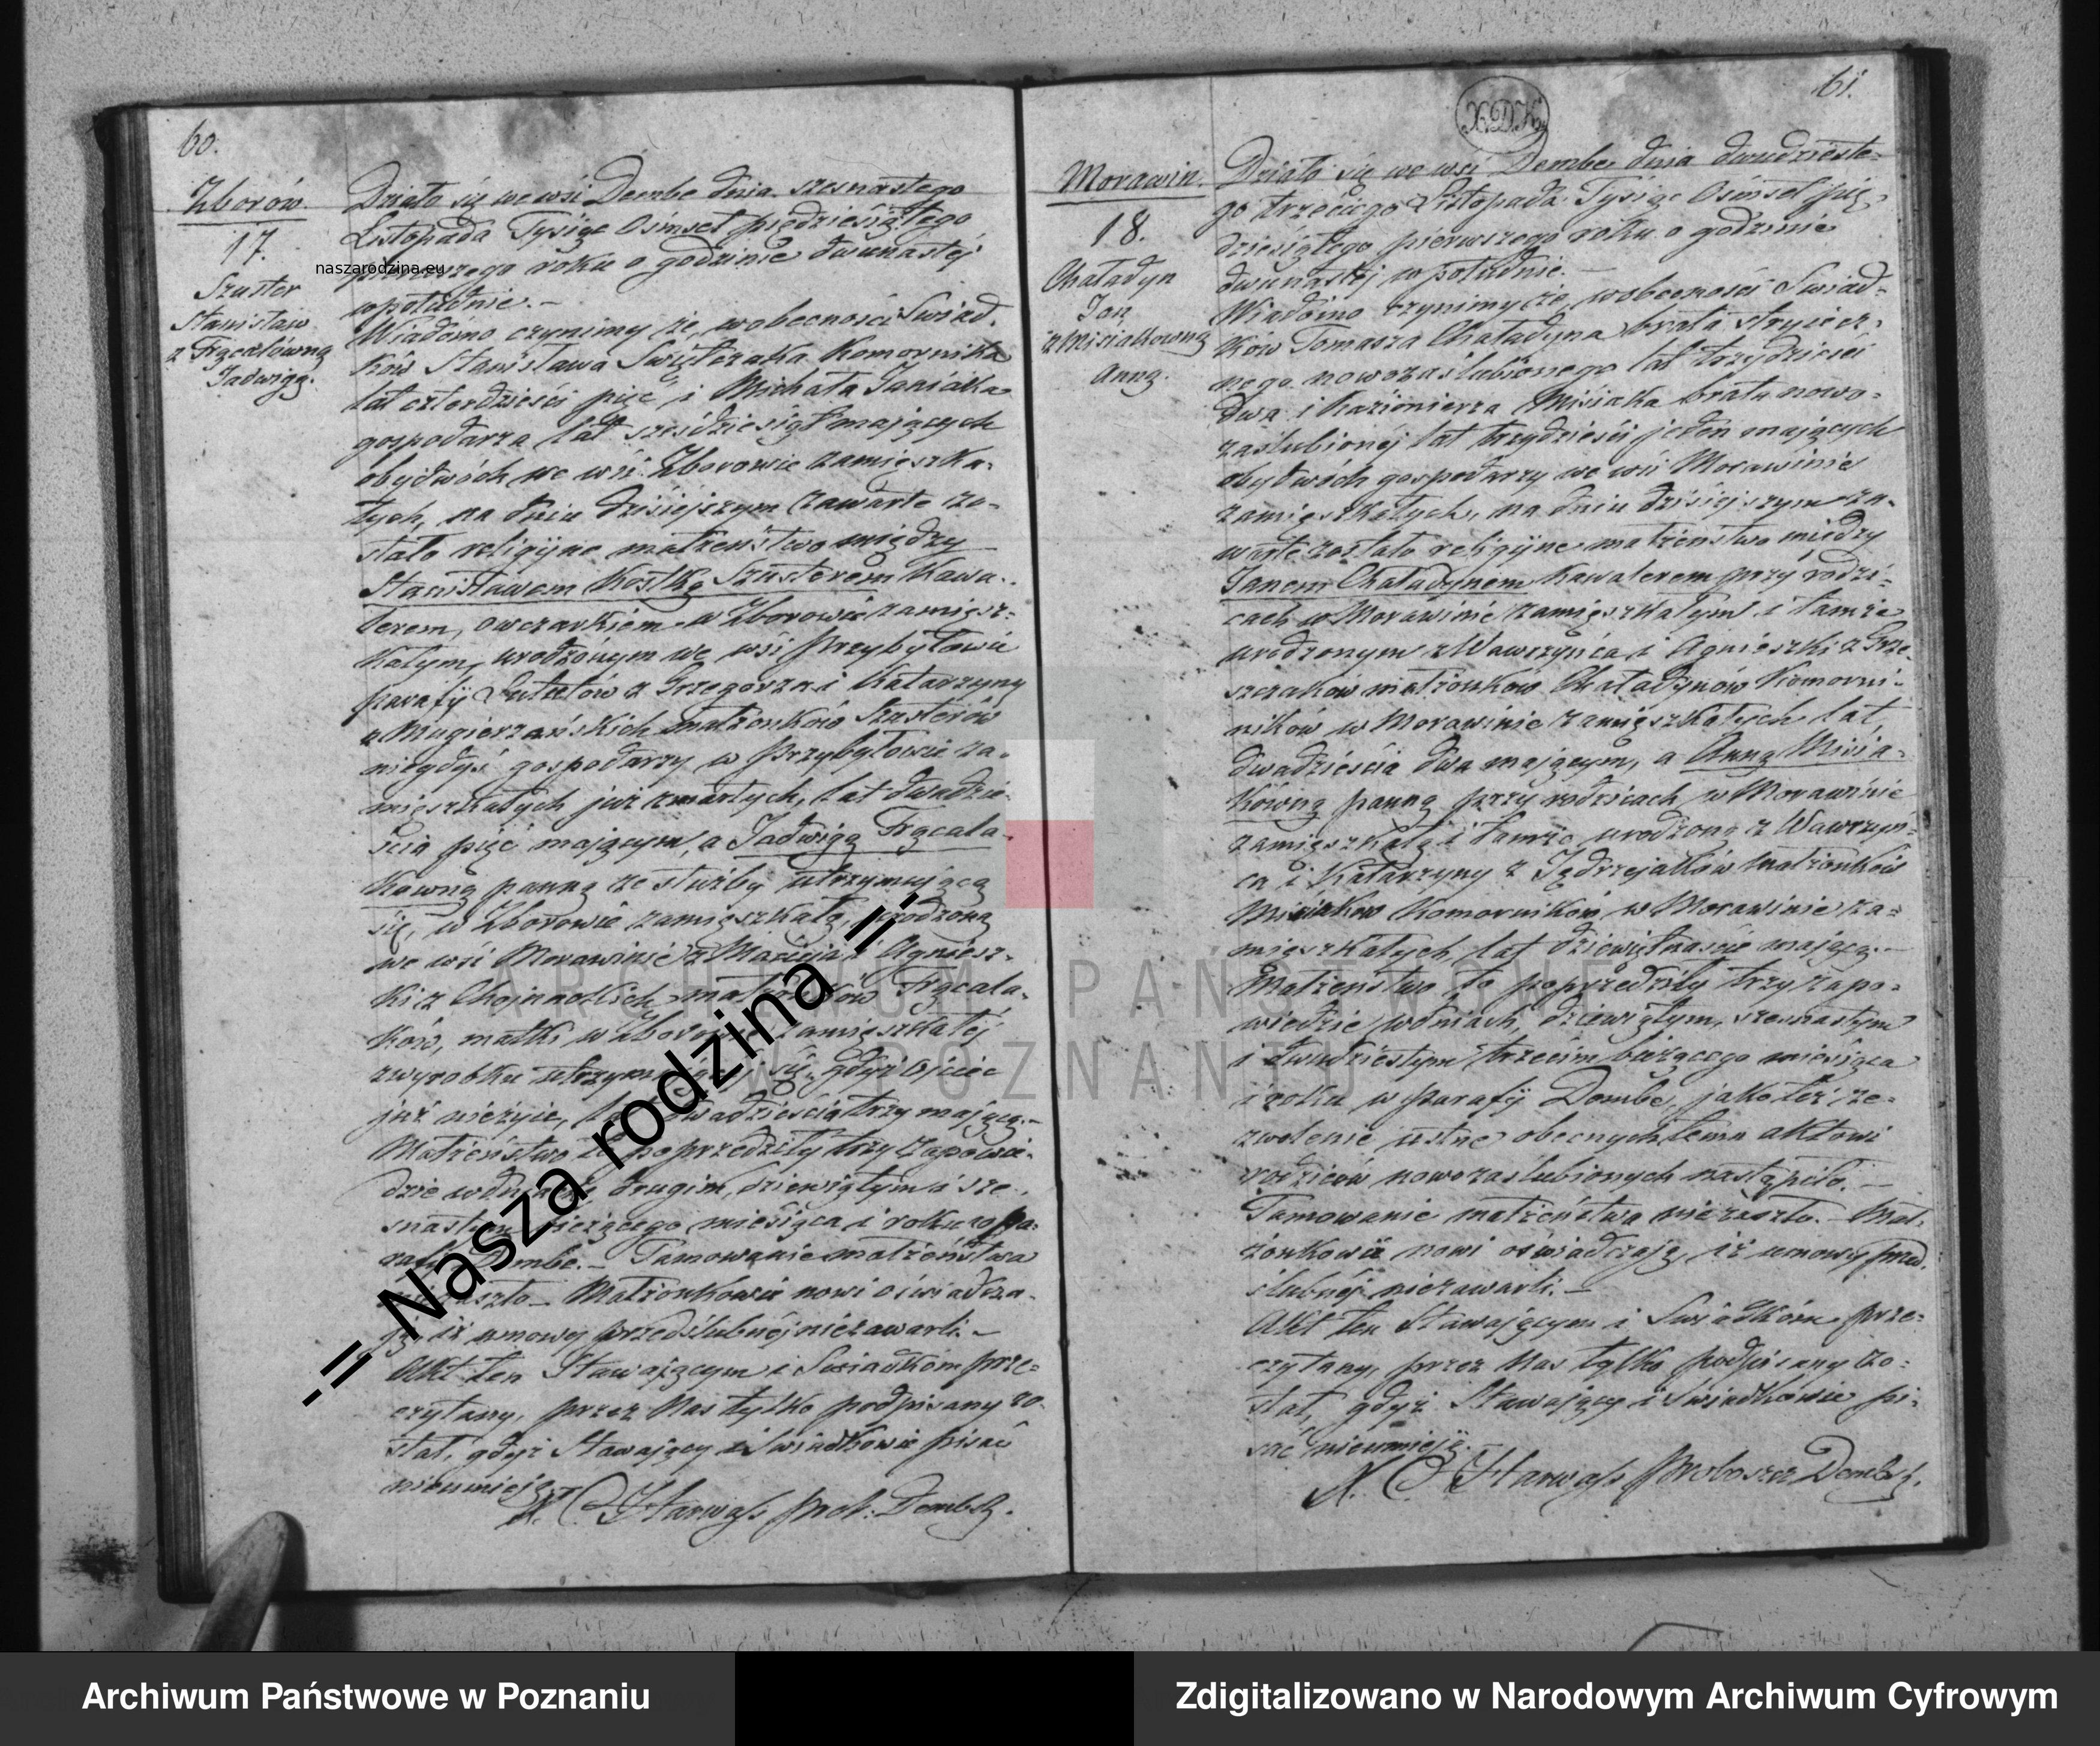 60.
Zborów.
17.
Szuster
Stanisław
z Frącalówną
Jadwigą.
Działo się we wsi Dembe dnia szesnastego
Listopada Tysiąc Osimset pięćdziesiątego
pierwszego roku o godzinie dwunastej
w południe. –
Wiadomo czynimy że w obecności Swiad-
ków Stanisława Swiętczaka Komornika
lat czterdzieści pięć i Michała Janiaka
gospodarza lat sześćdziesiąt mających
obydwóch we wsi Zborowie zamieszka-
łych, na dniu dzisiejszym zawarte zo-
stało religijne małżeństwo między
Stanisławem Kostką Szusterem Kawa-
lerem, owczarkiem w Zborowie zamiesz-
kałym, urodzonym we wsi Przybyłowie
parafij z Grzegorza i Katarzyny
z małżonków Szusterów
niegdyś gospodarzy w Przybyłowie za-
mieszkałych już zmarłych, lat dwadzie-
ścia pięć mającym, a Jadwigą Frącala-
kówną panną ze służby utrzymującą
się, w Zborowie zamieszkałą, urodzoną
we wsi Morawinie z Macieja i Agniesz-
ki z Chojnackich małżonków Frącala-
ków, matki w Zborowie zamieszkałej
z wyrobku utrzymującej się, gdyż ojciec
już nieżyie, lat dwadzieścia trzy mającą.–
Małżeństwo to poprzedziły trzy zapowie-
dzie w dniach, drugim, dziewiątym i sze-
snastym bieżącego miesiąca i roku w pa-
rafij Dembe. – Tamowanie małżeństwa
niezaszło – Małżonkowie nowi oświadcza-
ją, iż umowy przedślubnéj niezawarli. –
Akt ten Stawającym i Swiadkom prze-
czytany, przez Nas tylko podpisany zo-
stał, gdyż Stawający i Swiadkowie pisać
nieumieją.
X. C. Harwass prob: Dembsk.
61.
Morawin.
18.
Chaładyn
Jan
z Misiakówną
Anną.
Działo się we wsi Dembe dnia dwudzieste-
go trzeciego Listopada Tysiąc Osimset pięć-
dziesiątego pierwszego roku o godzinie
dwunastéj w południe. –
Wiadomo czynimy że w obecności Swiad-
ków Tomasza Chaładyna brata stryiecz-
nego nowozaślubionego lat trzydzieści
dwa i Kazimierza Misiaka brata nowo-
zaślubionéj lat trzydzieści jeden mających
obydwóch gospodarzy we wsi Morawinie
zamieszkałych, na dniu dzisiejszym za-
warte zostało religijne małżeństwo między
Janem Chaładynem Kawalerem przy rodzi-
cach w Morawinie zamieszkałym i tamże
urodzonym z Wawrzyńca i Agnieszki z Grze-
szczaków małżonków Chaładynów Komorni-
ników w Morawinie zamieszkałych lat,
dwadzieścia dwa mającym, a Anną Misia-
kówną panną przy rodzicach w Morawinie
zamieszkałą i tamże urodzoną z Wawrzyn-
ca i Katarzyny z Jędrzejaków małżonków
Misiaków Komorników w Morawinie za-
mieszkałych lat dziewiętnaście mającą. –
Małżeństwo to poprzedziły trzy zapo-
wiedzie w dniach, dziewiątym, szesnastym
i dwudziestym trzecim bieżącego miesiąca
i roku w parafij Dembe, jako téż ze-
zwolenie ustne obecnych temu aktowi
rodziców nowozaślubionych nastąpiło. –
Tamowanie małżeństwa niezaszło. – Mał-
żonkowie nowi oświadczają, iż umowy przed-
ślubnéj niezawarli. –
Akt ten Stawającym i Swiadkom prze-
czytany, przez Nas tylko podpisany zo-
stał, gdyż Stawający i Swiadkowie pi-
sać nieumieją. –
X. C. Harwass Proboszcz Dembsk.
naszarodzina.eu
-= Nasza rodzina =-
ARCHIWUM PAŃSTWOWE
W POZNANIU
Archiwum Państwowe w Poznaniu
Zdigitalizowano w Narodowym Archiwum Cyfrowym